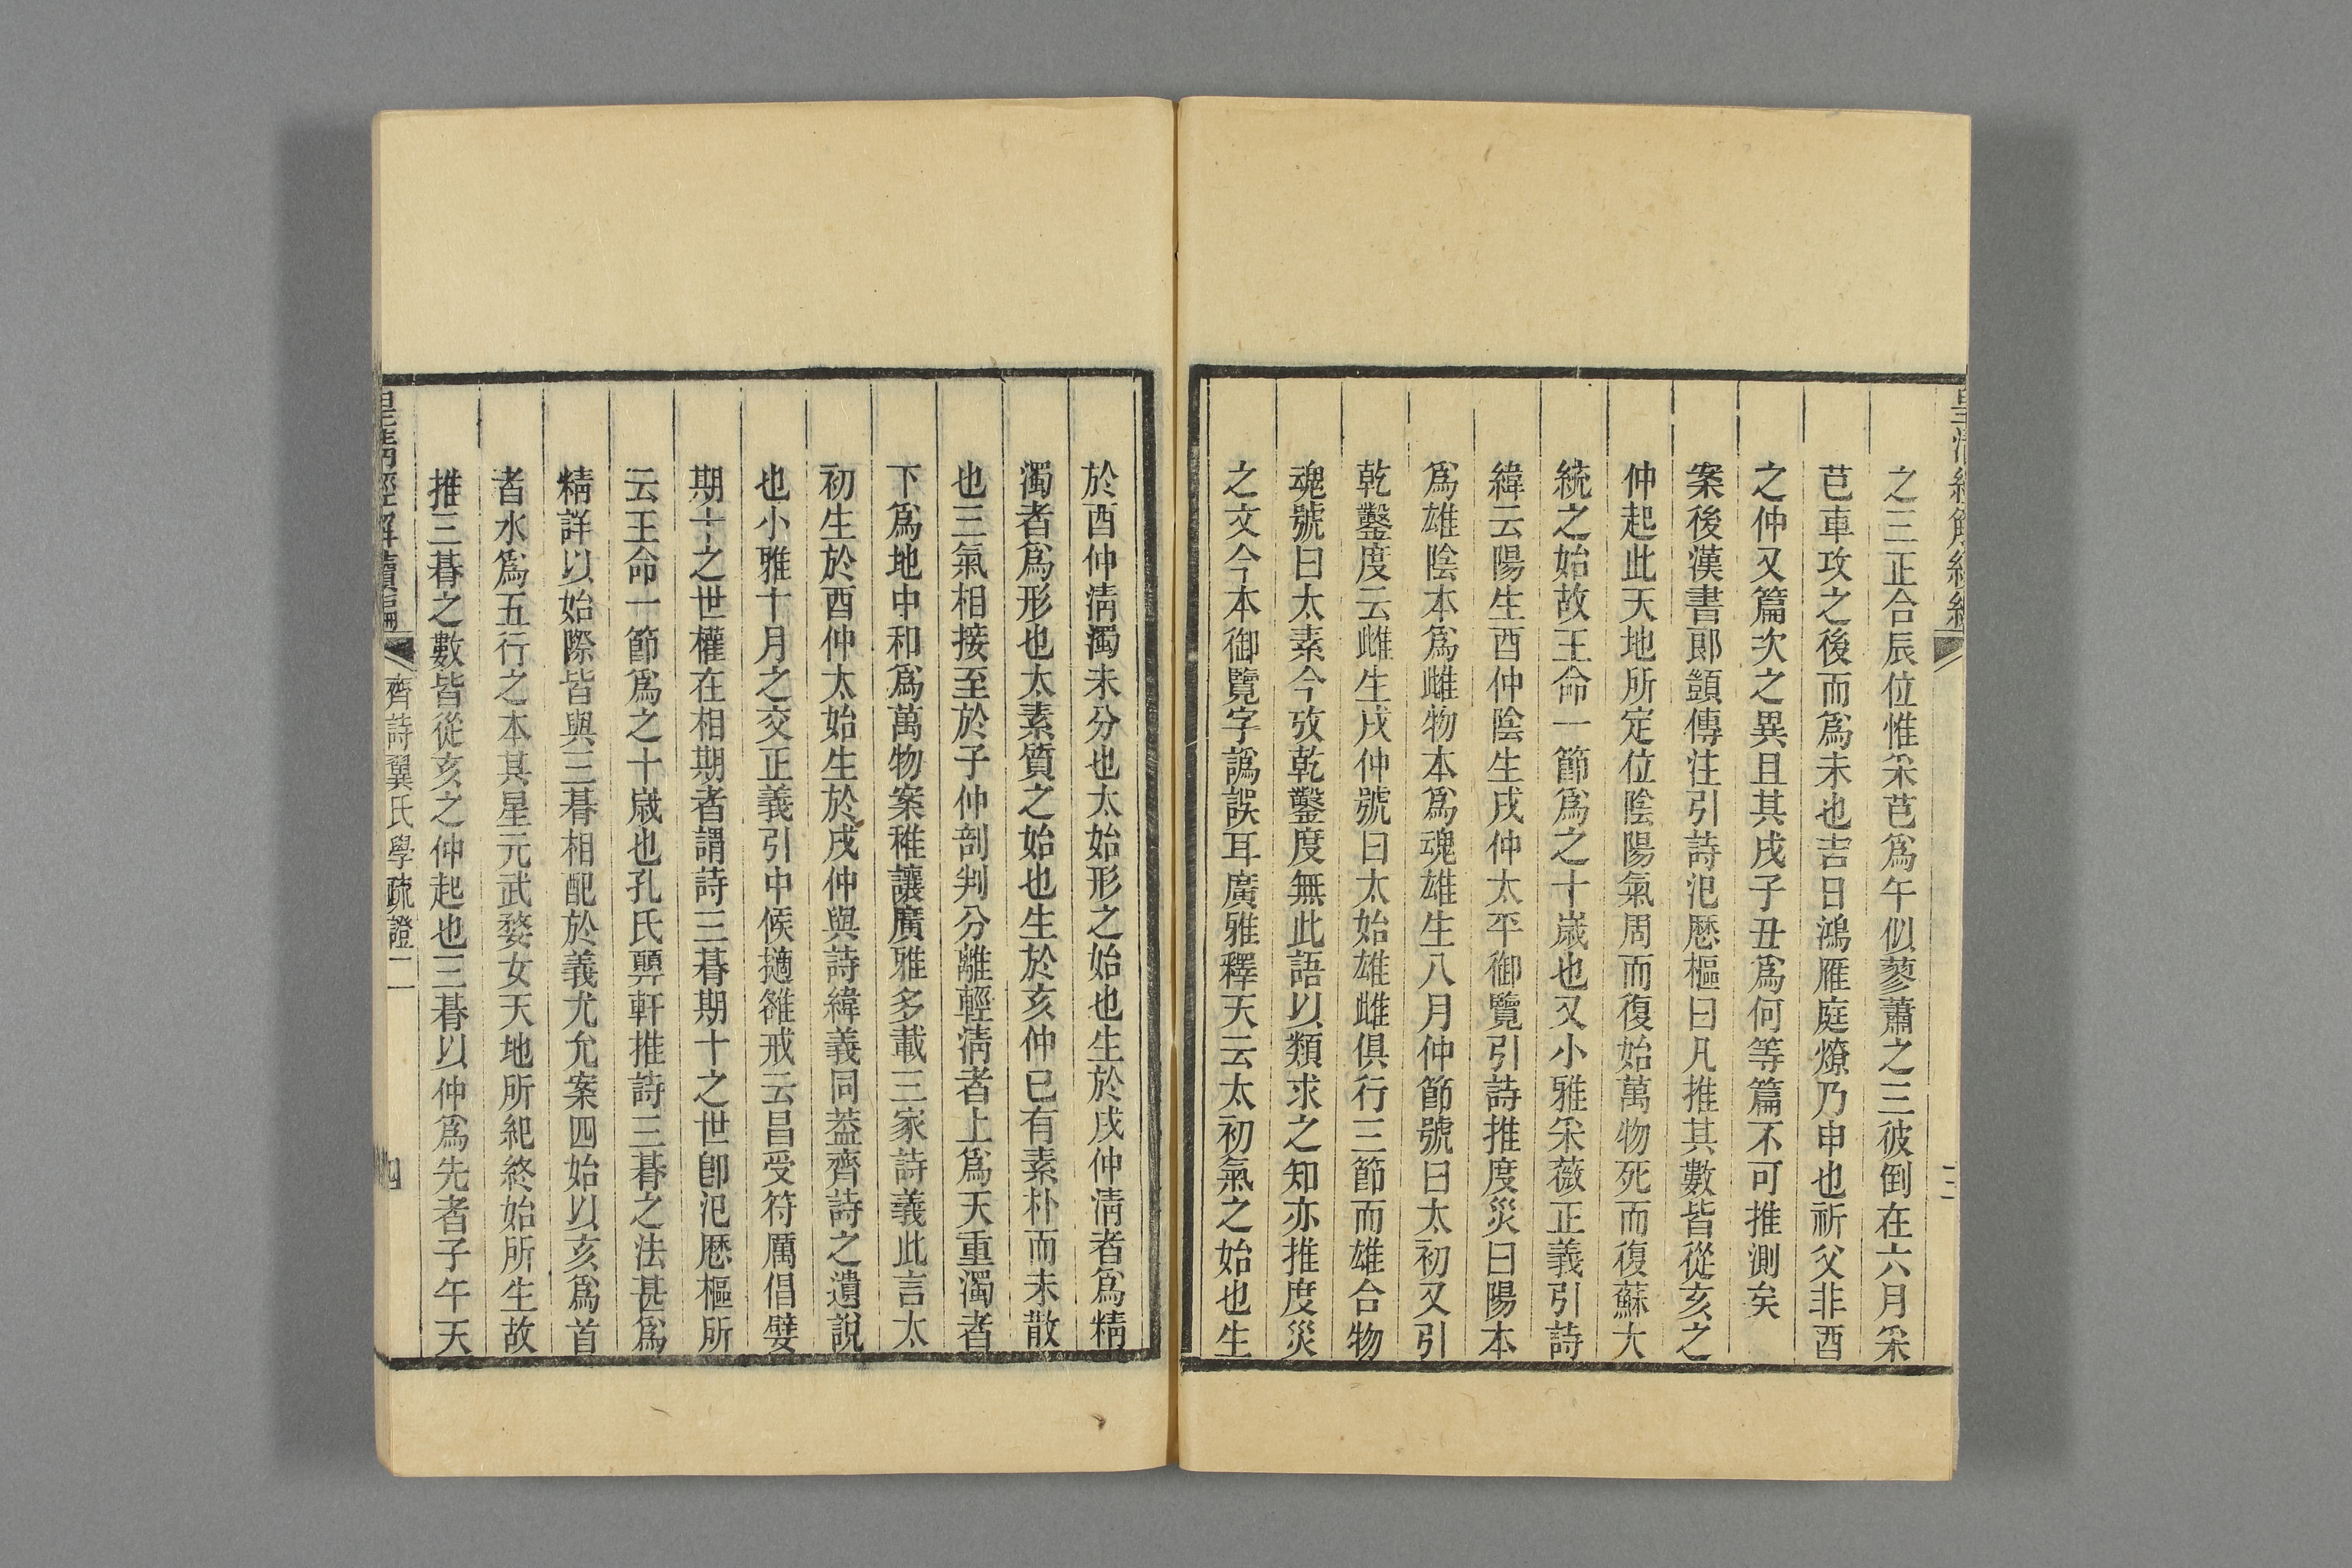 之三正合辰位惟采芑爲午似蓼蕭之三彼倒在六月采
芑車攻之後而爲未也吉日鴻雁庭燎乃申也祈父非酉
之仲又篇次之異且其戌子丑爲何等篇不可推測矣
案後漢書郎顗傳注引詩汜厯樞曰凡推其數皆從亥之
仲起此天地所定位陰陽氣周而復始萬物死而復蘇大
統之始故王命一節爲之十歲也又小雅采薇正義引詩
緯云陽生酉仲陰生戌仲太平御覽引詩推度災曰陽本
爲雄陰本爲雌物本爲魂雄生八月仲節號曰太初又引
乾鑿度云雌生戌仲號曰太始雄雌俱行三節而雄合物
魂號曰太素今攷乾鑿度無此語以類求之知亦推度災
之文今本御覽字譌誤耳廣雅釋天云太初氣之始也生
於酉仲淸濁未分也太始形之始也生於戌仲淸者爲精
濁者爲形也太素質之始也生於亥仲已有素朴而未散
也三氣相接至於子仲剖判分離輕淸者上爲天重濁者
下爲地中和爲萬物案稚讓廣雅多載三家詩義此言太
初生於酉仲太始生於戌仲與詩緯義同葢齊詩之遺說
也小雅十月之交正義引中候擿雒戒云昌受符厲倡嬖
期十之世權在相期者謂詩三朞期十之世卽汜厯樞所
云王命一節爲之十歲也孔氏㢲軒推詩三朞之法甚爲
精詳以始際皆與三朞相配於義尤允案四始以亥爲首
者水爲五行之本其星元武婺女天地所紀終始所生故
推三朞之數皆從亥之仲起也三朞以仲爲先者子午天
皇淸經解續編
齊詩翼氏學疏證二
四